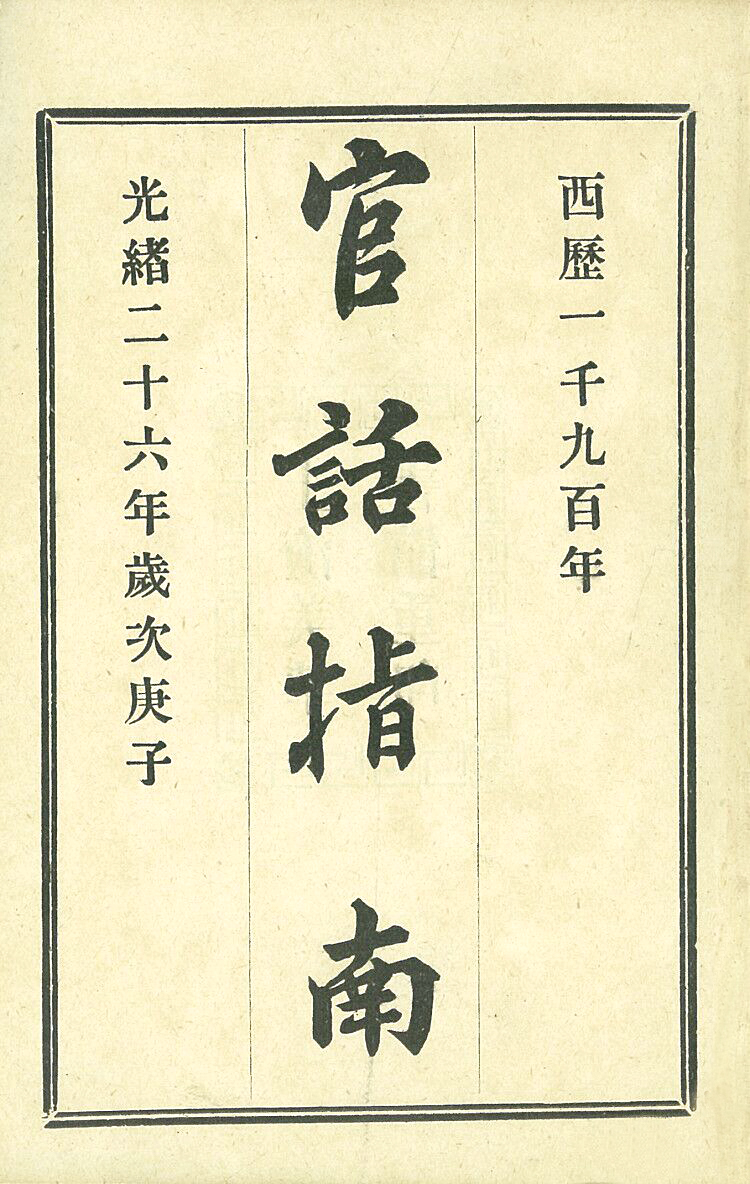 西歷一千九百年
官話指南
光緒二十六年歲次庚子